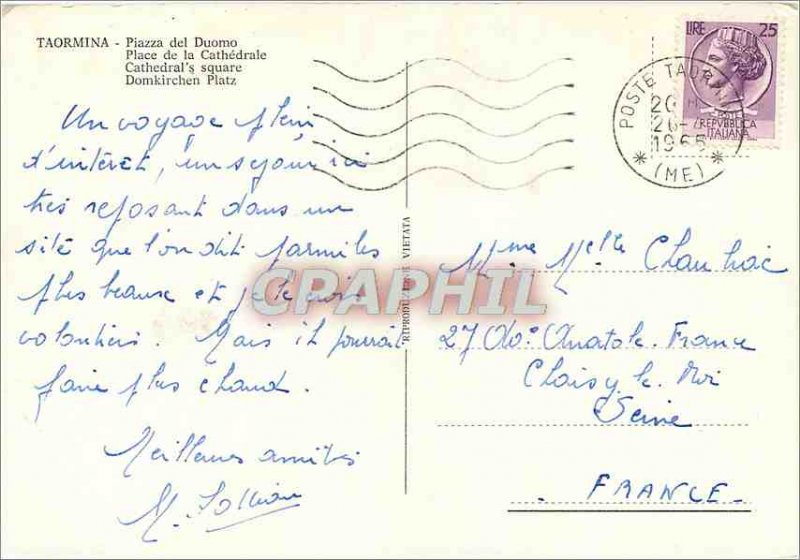 TAORMINA - Piazza del Duomo
Place de la Cathédrale
Cathedral's square
Domkirchen Platz
Un voyage plein
d'intérêt, un séjour ici
très reposant dans un
site que l'on dit parmi les
plus beaux et je le crois
volontiers. Mais il pourrait
faire plus chaud.
Meilleures amitiés
M.
RIPRODUZIONE VIETATA
LIRE 25
POSTE
REPVBBLICA
ITALIANA
POSTE TAORMINA
1965
* (ME) *
Mme Melle Chauhac
27 Av. Anatole France
Choisy le Roi
Seine
FRANCE
CPAPHIL